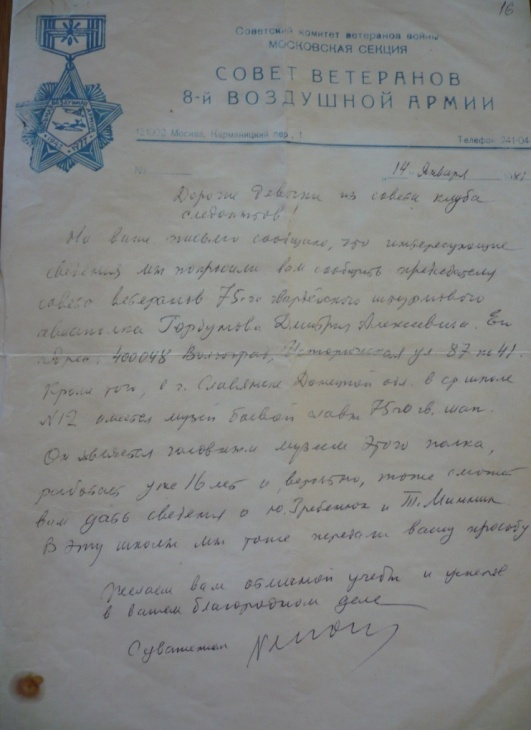 16
Советский комитет ветеранов войны
МОСКОВСКАЯ СЕКЦИЯ
СОВЕТ ВЕТЕРАНОВ
8-й ВОЗДУШНОЙ АРМИИ
Москва, пер., 1
Телефон 241-04
№
14 Января
Дорогие девочки из совета клуба
следопытов!
На ваше письмо сообщаю, что интересующие
сведения мы попросили вам сообщить председателю
совета ветеранов 75-го гвардейского штурмового
авиаполка Горбунова Дмитрия Алексеевича. Его
адрес: 400048 Волгоград, ул 87 кв 41.
Кроме того, в г. Славянске Донецкой обл. в ср школе
№12 имеется музей боевой славы 75-го гв. шап.
Он является головным музеем этого полка,
работает уже 16 лет и, вероятно, тоже сможет
вам дать сведения о Ю. Гребенюк и Т.
В эту школу мы тоже передали вашу просьбу
Желаем вам отличной учебы и успехов
в вашем благородном деле
С уважением